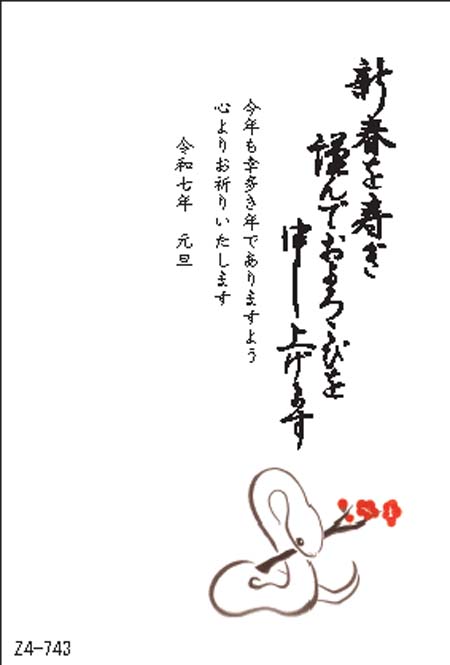 新春を寿ぎ
謹んでおよろこびを
申し上げます
今年も幸多き年でありますよう
心よりお祈りいたします
令和七年　元旦
Z4-743